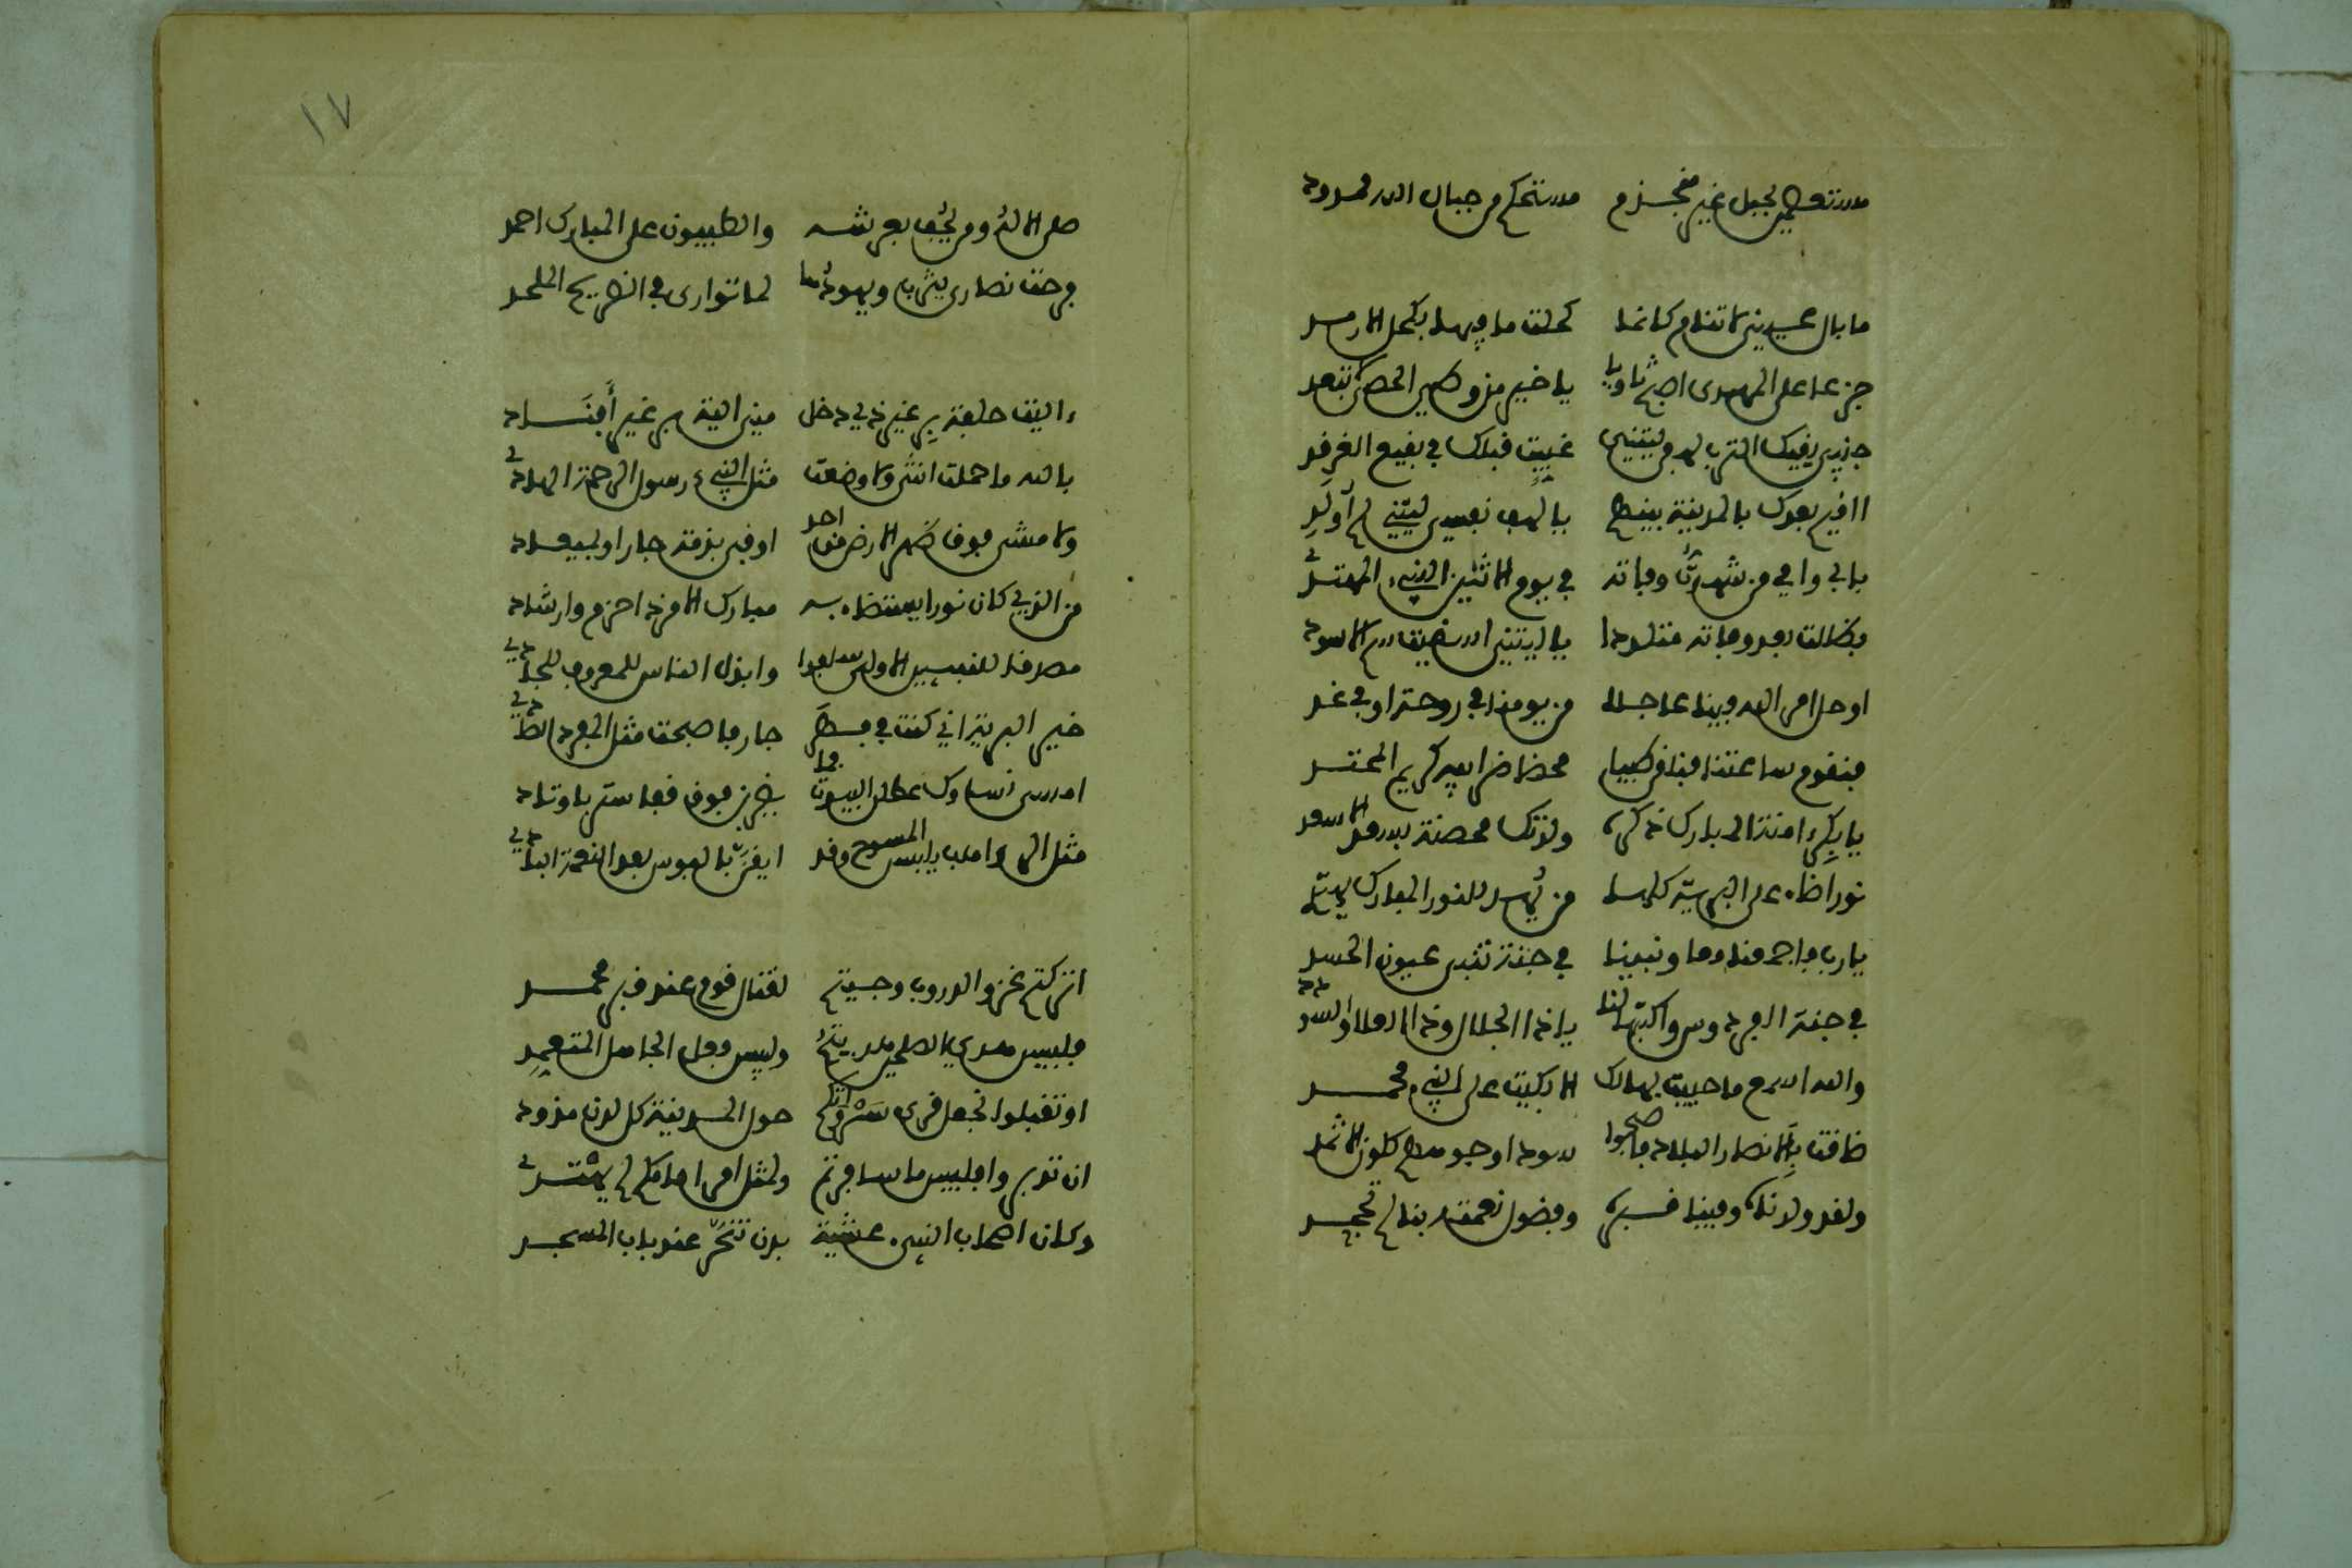 مستعصمين بحبل غير منجذم مستحكم من حبال الله ممدود
ما بال عينى لا تنام كانما كحلت ماقيها بكحل الارمد
جزعا على المهدى اصبح ثاويا يا خير من وطى الحصى لا تبعد
جنبى يقيك الترب لهفى ليتنى غيبت قبلك فى بقيع الغرقد
ااقيم بعدك بالمدينة بينهم يا لهف نفسى ليتنى لم اولد
بابى وامى من شهدت وفاته فى يوم الاثنين النبى المهتدى
فظللت بعد وفاته متلددا يا ليتنى اسقيت سم الاسود
او حل امر الله فينا عاجلا من يومنا فى روحة او فى غد
فتقوم ساعتنا فنلقى طيبا محضا ضرايبه كريم المحتد
يا بكر امنة المبارك ذكره ولدتك محصنة بسعد الاسعد
نورا اضاء على البرية كلها من يهد للنور المبارك يهتد
يا رب فاجمعنا معا ونبينا فى جنة تثنى عيون الحسد
فى جنة الفردوس واكتبها لنا يا ذا الجلال وذا العلا والسودد
والله اسمع ما حييت بهالك الا بكيت على النبى محمد
ضاقت بالانصار البلاد فاصبحوا سودا وجوههم كلون الاثمد
ولقد ولدناه وفينا قبره وفضول نعمته بنا لم تجحد
١٧
صلى الاله ومن يحف بعرشه والطيبون على المبارك احمد
فرحت نصارى يثرب ويهودها لما توارى فى الضريح الملحد
ءاليت حلفة بر غير ذى دخل منى الية بر غير افناد
بالله ما حملت انثى ولا وضعت مثل النبى رسول الرحمة الهادى
ولا مشى فوق ظهر الارض من احد اوفى بذمة جار او بميعاد
من الذى كان نورا يستضاء به مبارك الامر ذا حزم وارشاد
مصدقا للنبيين الاولى سلفوا وابذل الناس للمعروف للجادى
خير البرية انى كنت فى نهر جار فاصبحت مثل المفرد الصادى
امسى نساوك عطلن البيوت فما يضربن فوق قفا ستر باوتاد
مثل الرواهب يلبسن المسوح وقد ايقن بالبوس بعد النعمة البادى
اتركتم غزو الدروب وجيتم لقتال قوم عند قبر محمد
فلبيس هدى الصالحين هديتم ولبيس فعل الجاهل المتعمد
او تقبلوا نجعل قرى سرواتكم حول المدينة كل لدن مذود
ان تدبروا فلبيس ما سافرتم ولمثل امر امامكم لم يهتدى
وكان اصحاب النبى عشية بدن تنحر عند باب المسجد